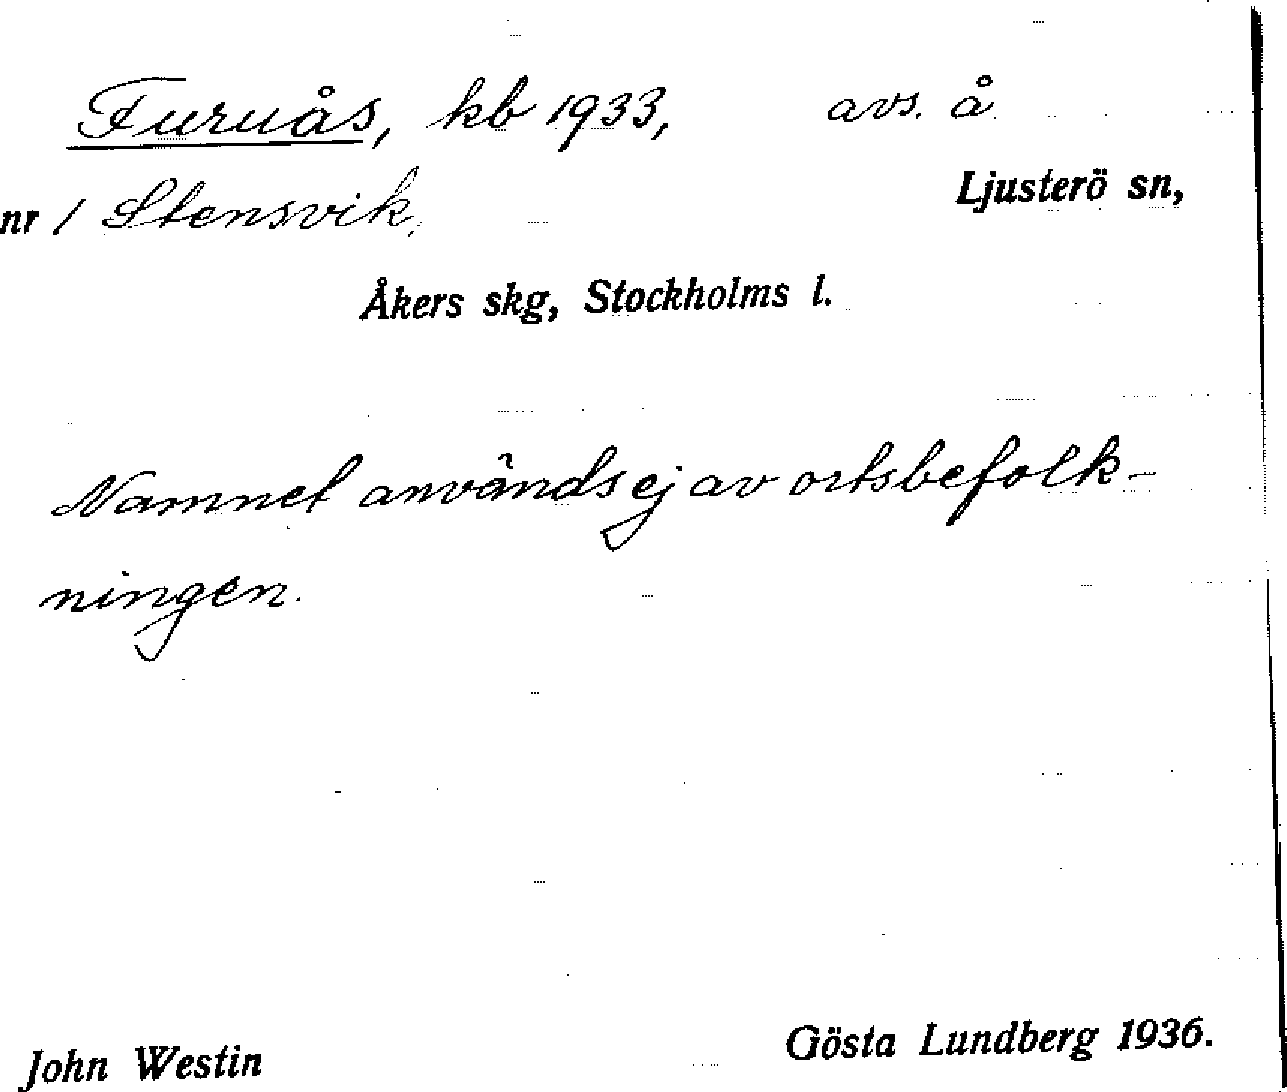 Furuås, kb 1933, avs. å
nr 1 Stensvik, Ljusterö sn,
Åkers skg, Stockholms l.
Namnet används ej av ortsbefolk-
ningen.
John Westin Gösta Lundberg 1936.